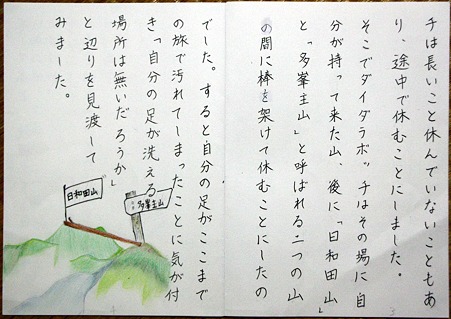 チは長いこと休んでいないこともあ
り、途中で休むことにしました。
そこでダイダラボッチはその場に自
分が持って来た山、後に「日和田山」
と「多峯主山」と呼ばれる二つの山
の間に棒を架けて休むことにしたの
でした。すると自分の足がここまで
の旅で汚れてしまったことに気が付
き「自分の足が洗える
場所は無いだろうか」
と辺りを見渡して
みました。
日和田山
多峯主山
3
4